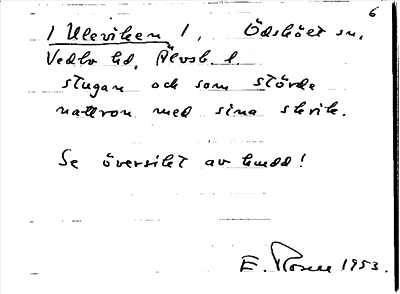 6
/ Uleviken /, Ödskölt sn,
Vedbo hd, Älvsb. l.
stugan och som störde
nattron med sina skrik.
Se översikt av kudd!
E. Rosell 1953.